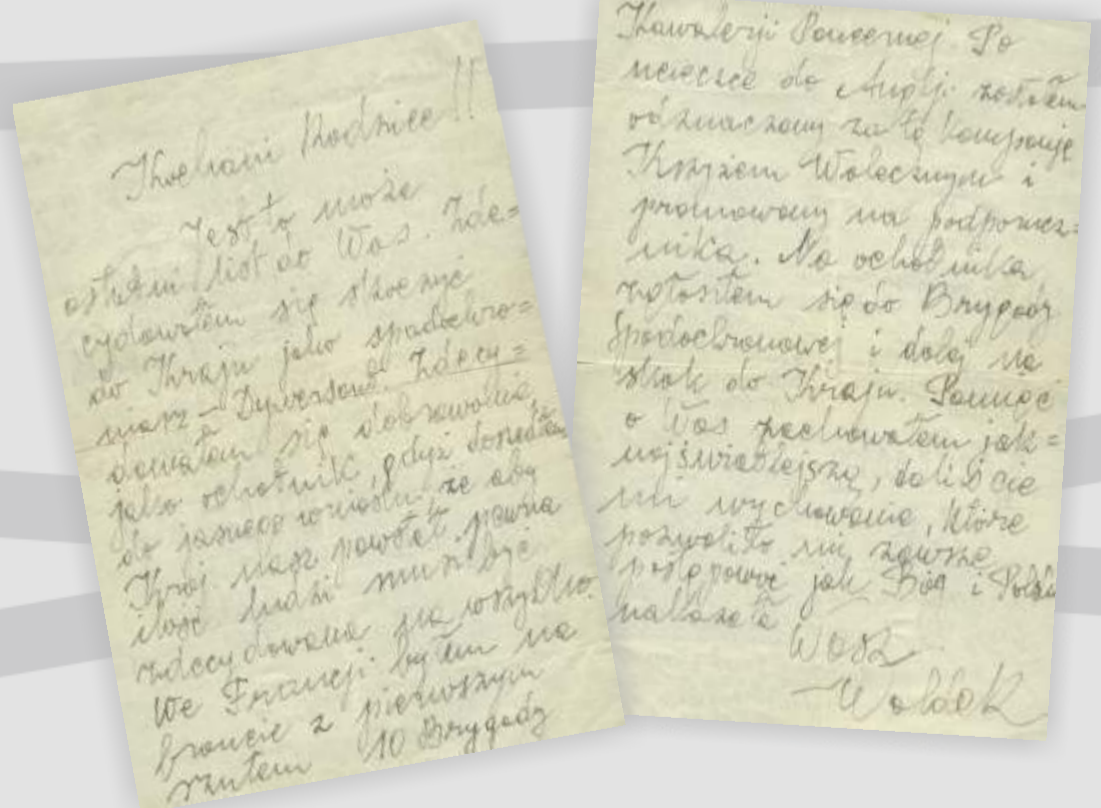 Kochani Rodzice!!
Jest to może
ostatni list do Was. Zde=
cydowałem się skoczyć
do Kraju jako spadochro=
niarz - Dywersant. Zdecy=
dowałem się dobrowolnie,
jako ochotnik, gdyż doszedłem
do jasnego wniosku, że aby
Kraj nasz powstał, pewna
ilość ludzi musi być
zdecydowana na wszystko.
We Francji byłem na
froncie z pierwszym
rzutem 10 Brygady
Kawalerji Pancernej. Po
ucieczce do Anglji zostałem
odznaczony za tę kampanję
Krzyżem Walecznym i
promowany na podporucz=
nika. Na ochotnika
zgłosiłem się do Brygady
Spadochronowej i dalej na
skok do Kraju. Pamięć
o Was zachowałem jak=
najświatlejszą, daliście
mi wychowanie, które
pozwoliło mi zawsze
postępować jak Bóg i Polska
nakazała
Wasz
Waldek